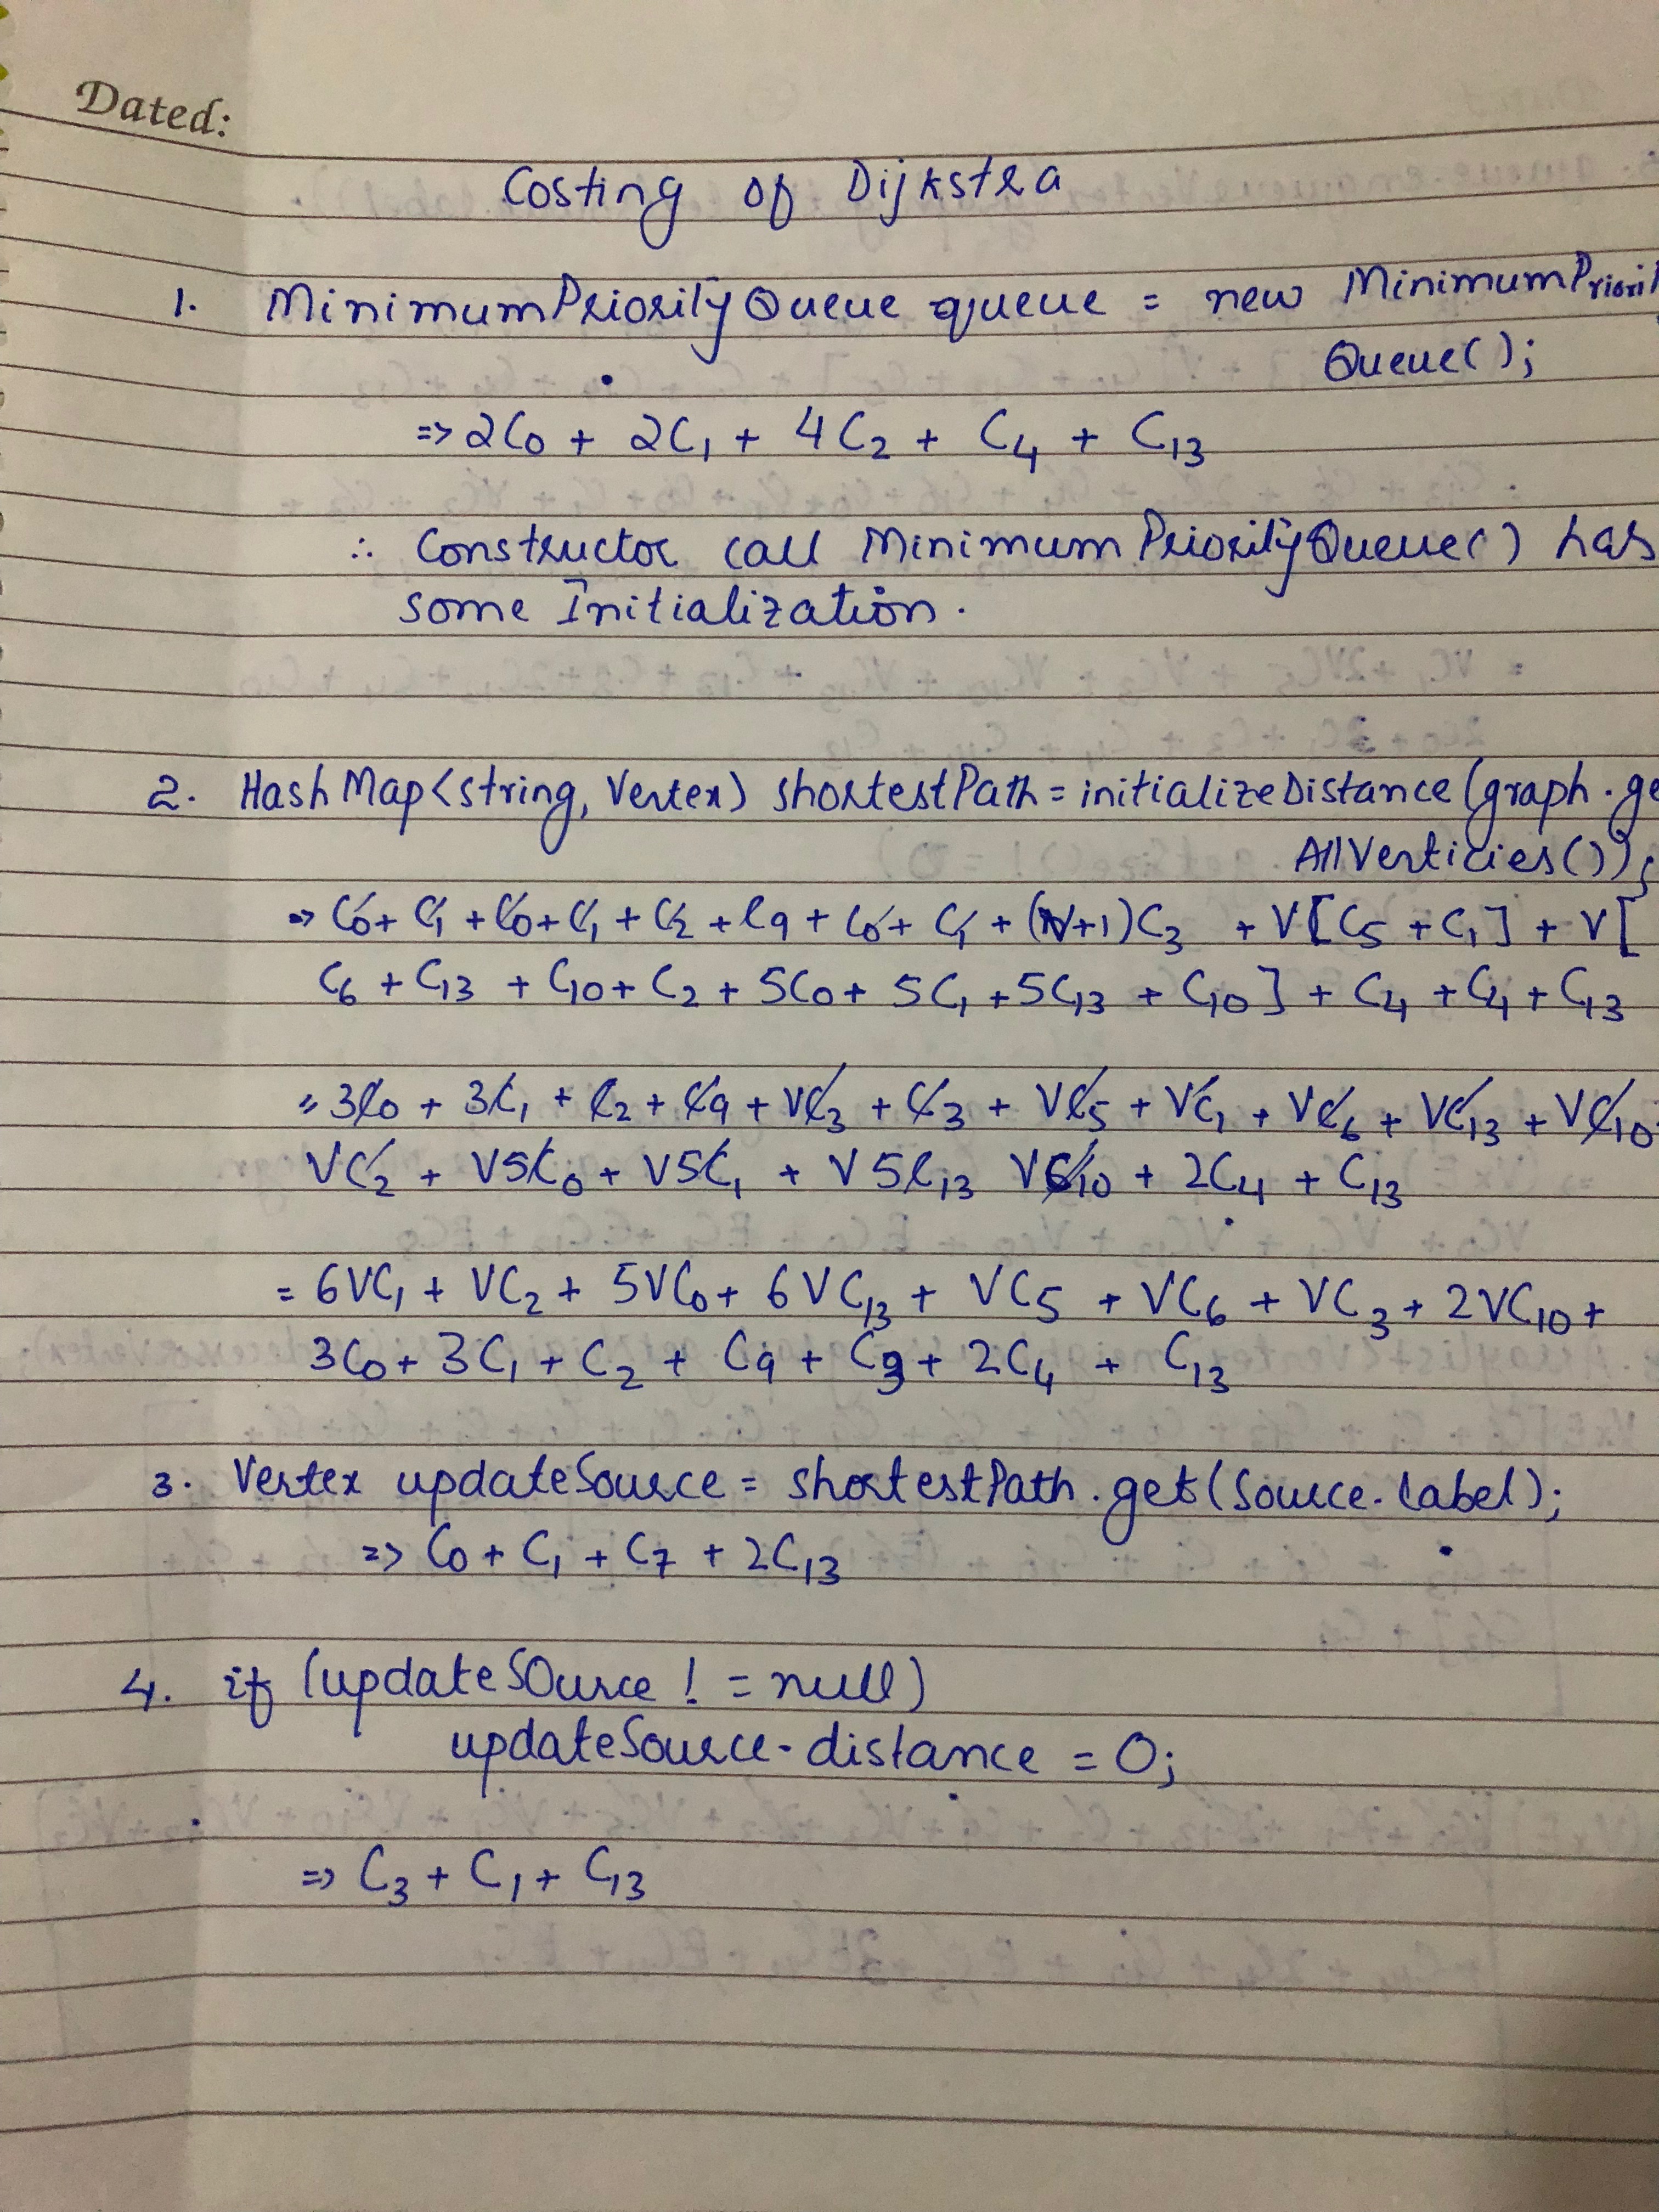 Dated:
Costing of Dijkstra
1. MinimumPriorityQueue queue = new MinimumPriorit
Queue();
=> 2C₀ + 2C₁ + 4C₂ + C₄ + C₁₃
∴ Constructor call MinimumPriorityQueue() has
some Initialization.
2. HashMap<string, Vertex) shortestPath = initializeDistance (graph.ge
AllVerticies());
=> C₀ + C₁ + C₀ + C₁ + C₂ + C₉ + C₀ + C₁ + (V+1)C₃ + V[C₅ + C₁] + V[
C₆ + C₁₃ + C₁₀ + C₂ + 5C₀ + 5C₁ + 5C₁₃ + C₁₀] + C₄ + C₄ + C₁₃
= 3C₀ + 3C₁ + C₂ + C₉ + VC₃ + C₃ + VC₅ + VC₁ + VC₆ + VC₁₃ + VC₁₀
VC₂ + V5C₀ + V5C₁ + V5C₁₃ VC₁₀ + 2C₄ + C₁₃
= 6VC₁ + VC₂ + 5VC₀ + 6VC₁₃ + VC₅ + VC₆ + VC₃ + 2VC₁₀ +
3C₀ + 3C₁ + C₂ + C₉ + C₃ + 2C₄ + C₁₃
3. Vertex updateSource = shortestPath.get(Source.label);
=> C₀ + C₁ + C₇ + 2C₁₃
4. if (updateSource != null)
updateSource.distance = 0;
=> C₃ + C₁ + C₁₃